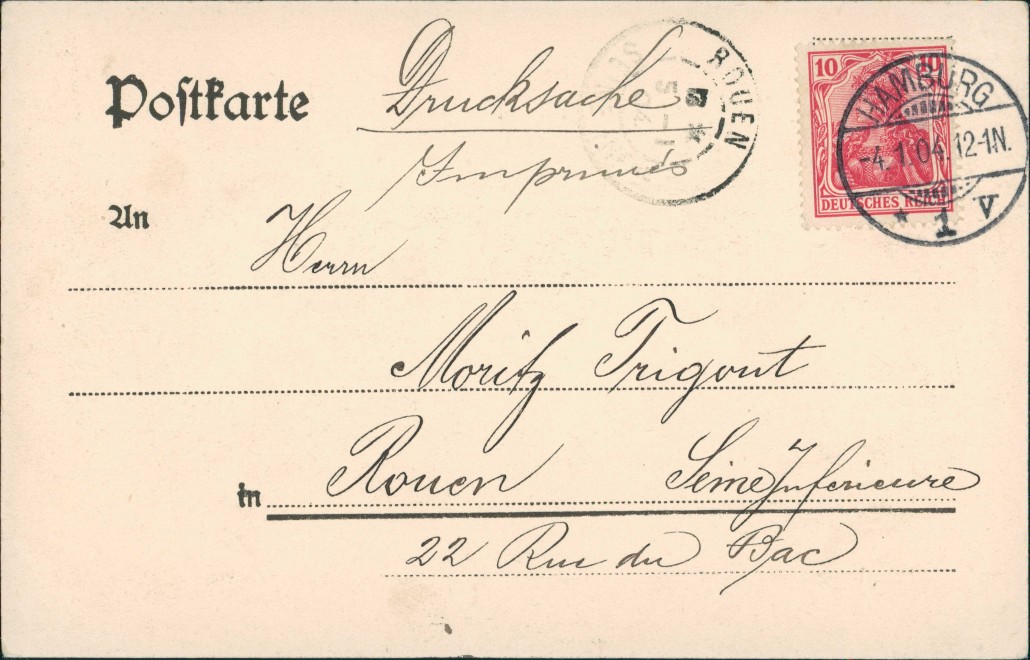 Postkarte
Drucksache
Imprimés
ROUEN
10 10
DEUTSCHES REICH
HAMBURG
-4.1.04.12-1N.
* 1 V
An
Herrn
Moritz Trigout
in Rouen Seine Inferieure
22 Rue du Bac